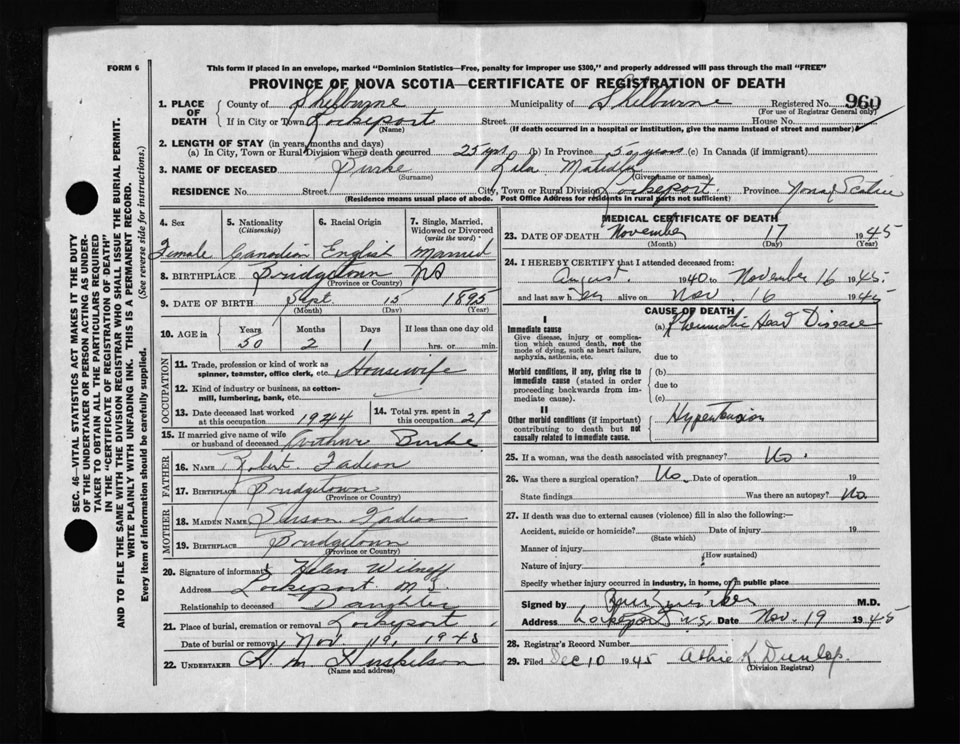 FORM 6
This form if placed in an envelope, marked "Dominion Statistics—Free, penalty for improper use $300," and properly addressed will pass through the mail "FREE"
PROVINCE OF NOVA SCOTIA—CERTIFICATE OF REGISTRATION OF DEATH
SEC. 46—VITAL STATISTICS ACT MAKES IT THE DUTY
OF THE UNDERTAKER OR PERSON ACTING AS UNDER-
TAKER TO OBTAIN ALL THE PARTICULARS REQUIRED
IN THE "CERTIFICATE OF REGISTRATION OF DEATH"
AND TO FILE THE SAME WITH THE DIVISION REGISTRAR WHO SHALL ISSUE THE BURIAL PERMIT.
WRITE PLAINLY WITH UNFADING INK. THIS IS A PERMANENT RECORD.
Every item of information should be carefully supplied. (See reverse side for instructions.)
1. PLACE OF DEATH County of Shelburne Municipality of Shelburne Registered No. 960
(For use of Registrar General only)
If in City or Town Lockeport Street House No.
(Name) (If death occurred in a hospital or institution, give the name instead of street and number)
2. LENGTH OF STAY (in years, months and days)
(a) In City, Town or Rural Division where death occurred 25 yrs (b) In Province 50 years (c) In Canada (if immigrant)
3. NAME OF DECEASED Burke Lila Matilda
(Surname) (Given name or names)
RESIDENCE No. Street City, Town or Rural Division Lockeport. Province Nova Scotia
(Residence means usual place of abode. Post Office Address for residents in rural parts not sufficient)
4. Sex 5. Nationality (Citizenship) 6. Racial Origin 7. Single, Married, Widowed or Divorced (write the word)
Female Canadian English Married
8. BIRTHPLACE Bridgetown NS
(Province or Country)
9. DATE OF BIRTH Sept. 15 1895
(Month) (Day) (Year)
10. AGE in Years Months Days If less than one day old
50 2 1 hrs. or min.
OCCUPATION
11. Trade, profession or kind of work as spinner, teamster, office clerk, etc. Housewife
12. Kind of industry or business, as cotton-mill, lumbering, bank, etc.
13. Date deceased last worked at this occupation 1944 14. Total yrs. spent in 29
15. If married give name of wife or husband of deceased Burke
FATHER
16. NAME Robert
17. BIRTHPLACE Bridgetown
(Province or Country)
MOTHER
18. MAIDEN NAME
19. BIRTHPLACE Bridgetown
(Province or Country)
20. Signature of informant Helen
Address Lockeport N S
Relationship to deceased Daughter
21. Place of burial, cremation or removal Lockeport
Date of burial or removal Nov. 19, 1945
22. UNDERTAKER H. M. Huskilson
(Name and address)
MEDICAL CERTIFICATE OF DEATH
23. DATE OF DEATH November 17 1945
(Month) (Day) (Year)
24. I HEREBY CERTIFY that I attended deceased from:
August 1940 to November 16 1945.
and last saw her alive on Nov. 16 1945
CAUSE OF DEATH
I
Immediate cause (a) Rheumatic Heart Disease
Give disease, injury or complica-
tion which caused death, not the
mode of dying, such as heart failure,
asphyxia, asthenia, etc. due to
Morbid conditions, if any, giving rise to (b)
immediate cause (stated in order due to
proceeding backwards from im-
mediate cause). (c)
II
Other morbid conditions (if important) Hypertension
contributing to death but not
causally related to immediate cause.
25. If a woman, was the death associated with pregnancy? No.
26. Was there a surgical operation? No. Date of operation 19
State findings Was there an autopsy? No.
27. If death was due to external causes (violence) fill in also the following:—
Accident, suicide or homicide? Date of injury 19
(State which)
Manner of injury
(How sustained)
Nature of injury
Specify whether injury occurred in industry, in home, or in public place
Signed by M.D.
Address Lockeport N.S. Date Nov. 19 1945
28. Registrar's Record Number
29. Filed Dec 10 1945 Dunlop.
(Division Registrar)